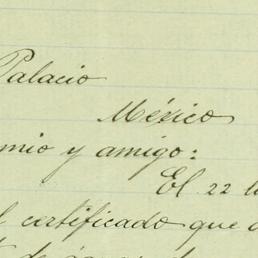 Palacio
México
mio y amigo:
El 22
certificado que